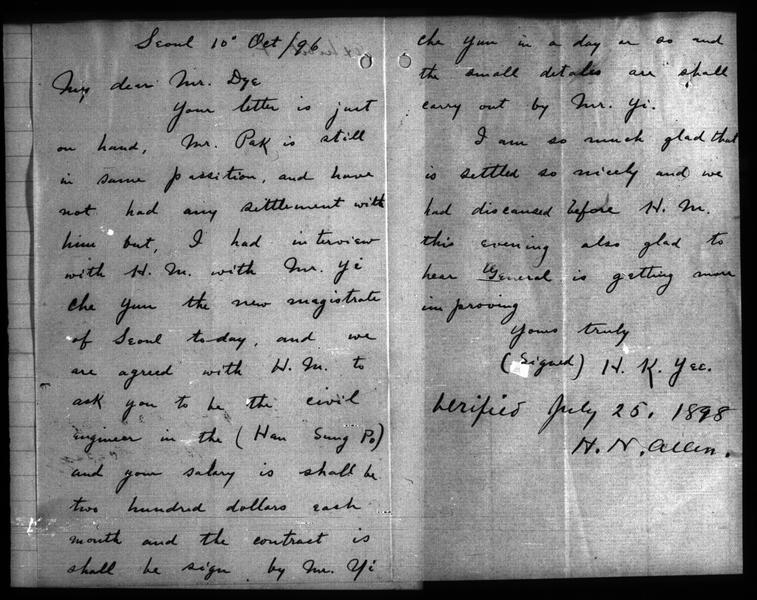 Seoul 10" Oct/96
My dear Mr. Dye
Your letter is just
on hand, Mr. Pak is still
in same possition, and have
not had any settlement with
him but, I had interview
with H. M. with Mr. Yi
Che Yun the new magistrate
of Seoul to-day, and we
are agreed with H. M. to
ask you to be the civil
engineer in the (Han Sung Po)
and your salary is shall be
two hundred dollars each
month and the contract is
shall be sign by Mr. Yi
Che Yun in a day or so and
the small detales are shall
carry out by Mr. Yi.
I am so much glad that
is settled so nicely and we
had discaused before H. M.
this evening also glad to
hear General is getting more
improving
Yours truly
(Signed) H. K. Yee.
Verified July 25, 1898
H. N. Allen.